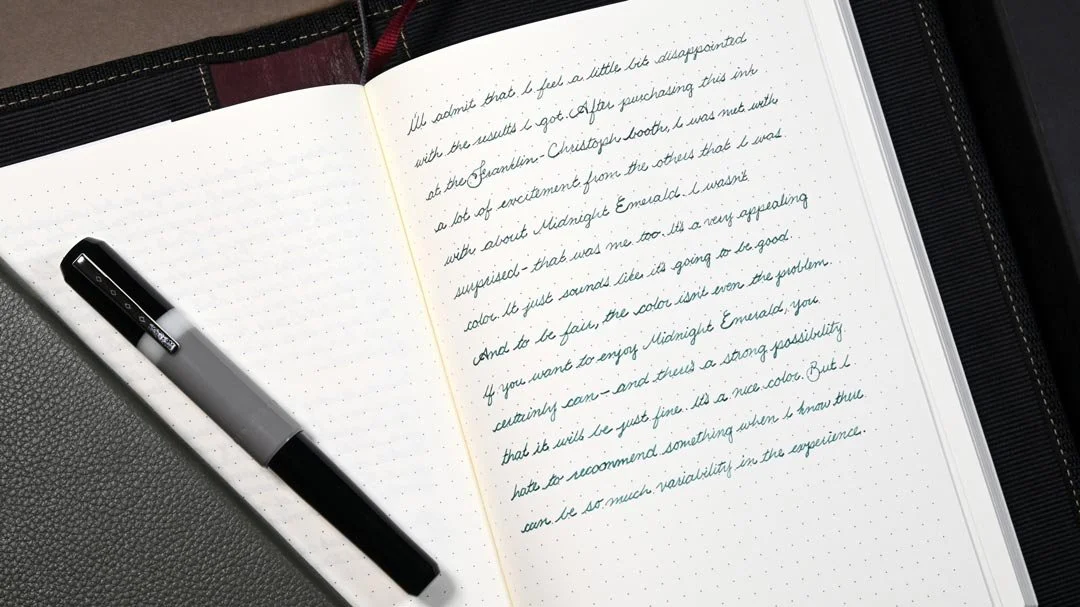 I'll admit that I feel a little bit disappointed
with the results I got. After purchasing this ink
at the Franklin-Christoph booth, I was met with
a lot of excitement from the others that I was
with about Midnight Emerald. I wasn't
surprised - that was me too. It's a very appealing
color. It just sounds like it's going to be good.
And to be fair, the color isn't even the problem.
If you want to enjoy Midnight Emerald, you
certainly can - and there's a strong possibility
that it will be just fine. It's a nice color. But I
hate to recommend something when I know there
can be so much variability in the experience.